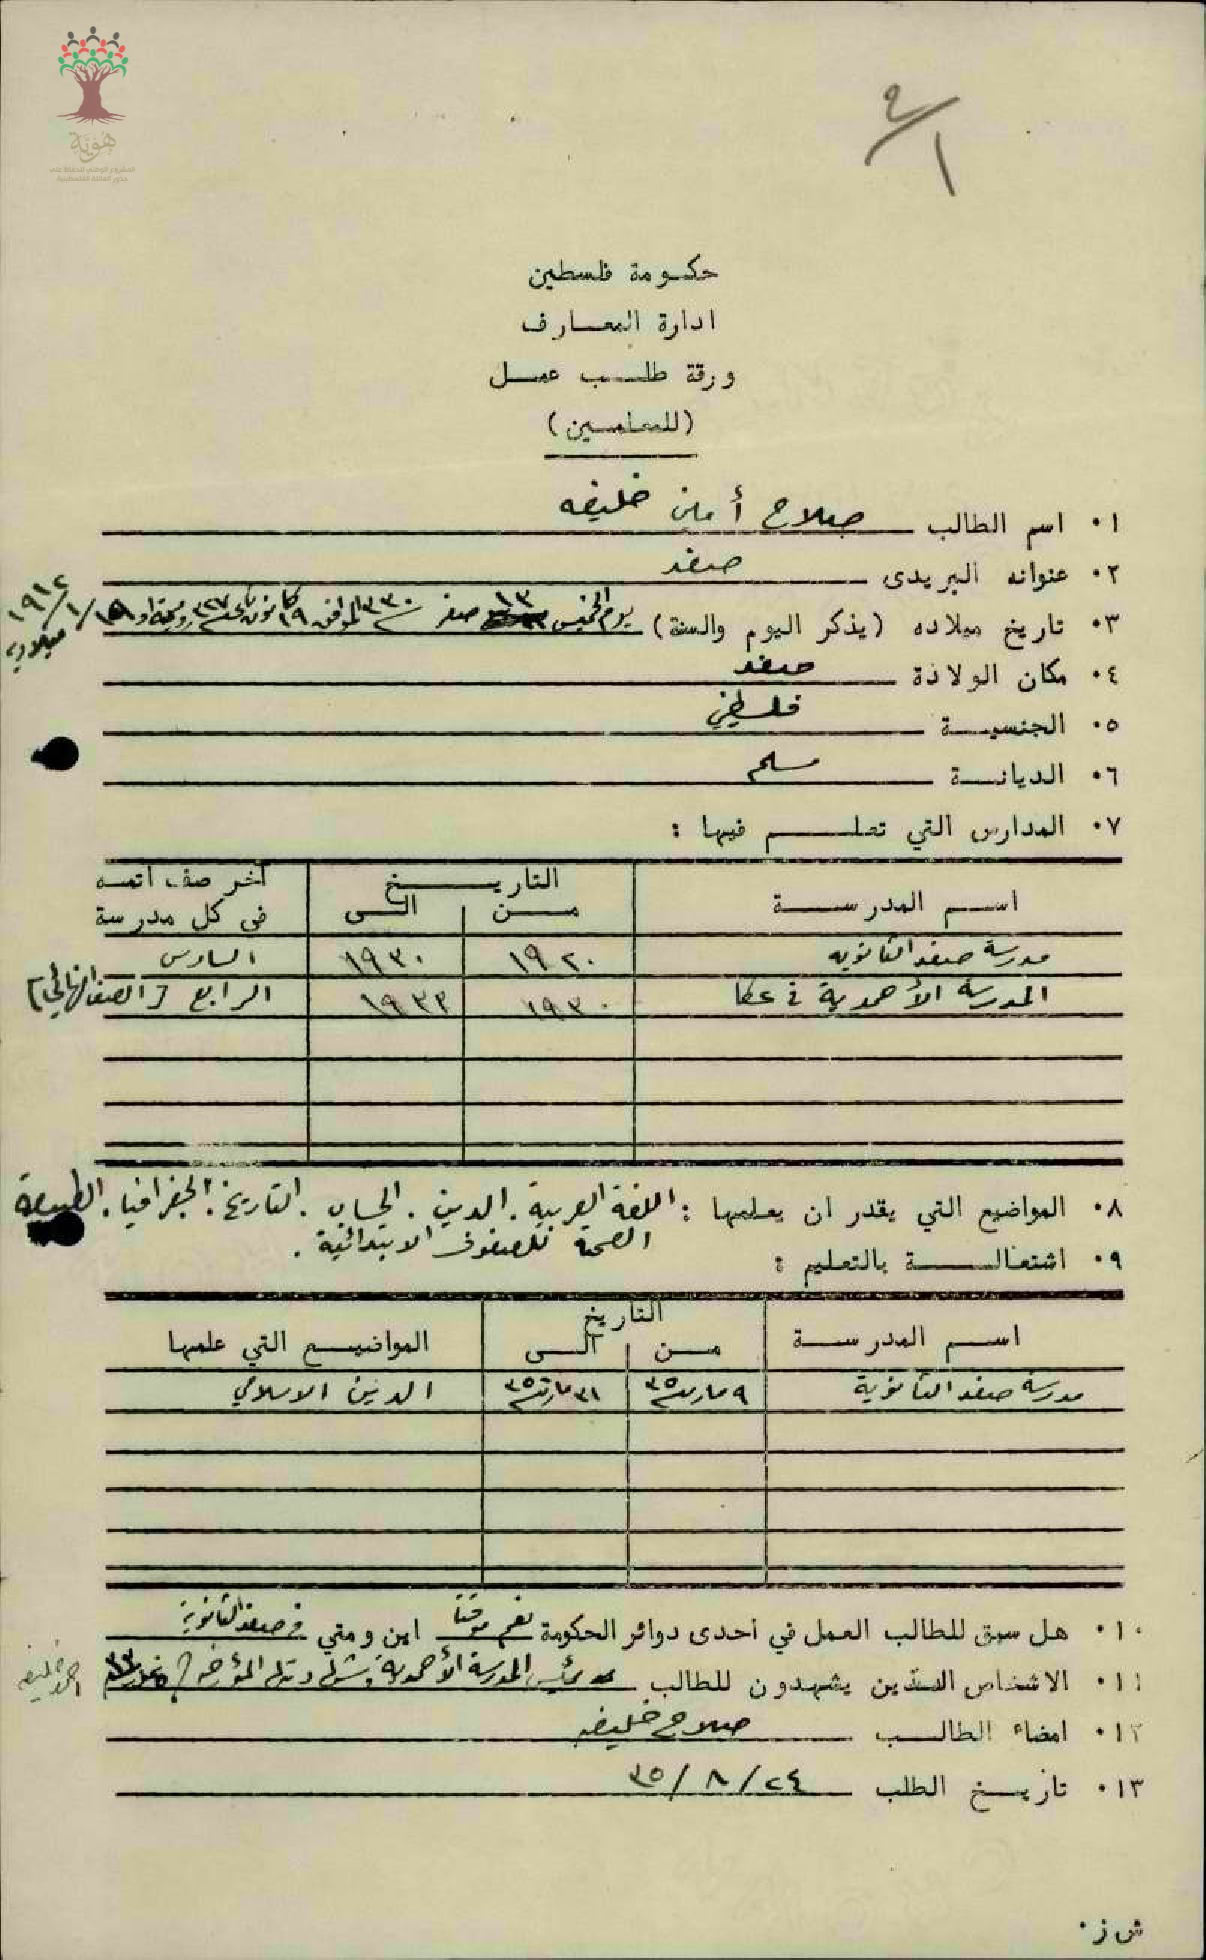 هوية
المشروع الوطني للحفاظ على
جذور العائلة الفلسطينية
٢/١
حكومة فلسطين
ادارة المعارف
ورقة طلب عمل
(للمعلمين)
٠١ اسم الطالب صلاح أمين خليفه
٠٢ عنوانه البريدى صفد
٠٣ تاريخ ميلاده (يذكر اليوم والسنة) يوم الخميس ١٣ صفر ٣٣٠ الموافق ١٩ كانون ٣٢٧
١٩١٢/١/
ميلادي
٠٤ مكان الولادة صفد
٠٥ الجنسية فلسطيني
٠٦ الديانة مسلم
٠٧ المدارس التي تعلم فيها :
اسم المدرسة التاريخ آخر صف أتمه
من الى في كل مدرسة
مدرسة صفد الثانويه ١٩٢٠ ١٩٣٠ السادس
المدرسة الأحمدية في عكا ١٩٣٠ ١٩٣٣ الرابع [الصف النهائي]
٠٨ المواضيع التي يقدر ان يعلمها : اللغة العربية . الدين . الحساب . التاريخ . الجغرافيا . الطبيعة
الصحة للصفوف الابتدائية .
٠٩ اشتغالة بالتعليم :
اسم المدرسة التاريخ المواضيع التي علمها
من الى
مدرسة صفد الثانوية ٩ مارت ٣٥ ٣١ مارت ٣٥ الدين الاسلامي
٠١٠ هل سبق للطالب العمل في احدى دوائر الحكومة نعم موقتا اين ومتي في صفد الثانوية
٠١١ الاشخاص الذين يشهدون للطالب رئيس المدرسة الأحمدية المؤرخه
احمد خليفه
٠١٢ امضاء الطالب صلاح خليفه
٠١٣ تاريخ الطلب ٢٤/٨/٣٥
ش ز ٠